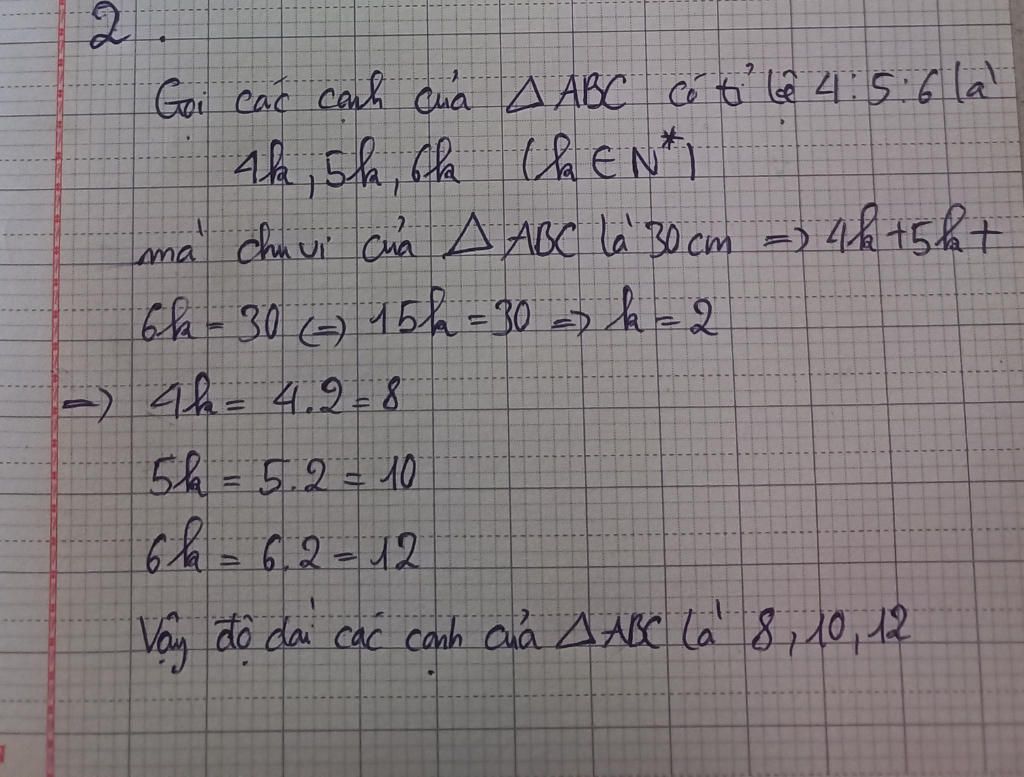 2.
Gọi các cạnh của △ABC có tỉ lệ 4:5:6 là
4k, 5k, 6k (k ∈ N*)
mà chu vi của △ABC là 30cm => 4k+5k+
6k = 30 <=> 15k = 30 => k = 2
=> 4k = 4.2 = 8
5k = 5.2 = 10
6k = 6.2 = 12
Vậy độ dài các cạnh của △ABC là 8, 10, 12